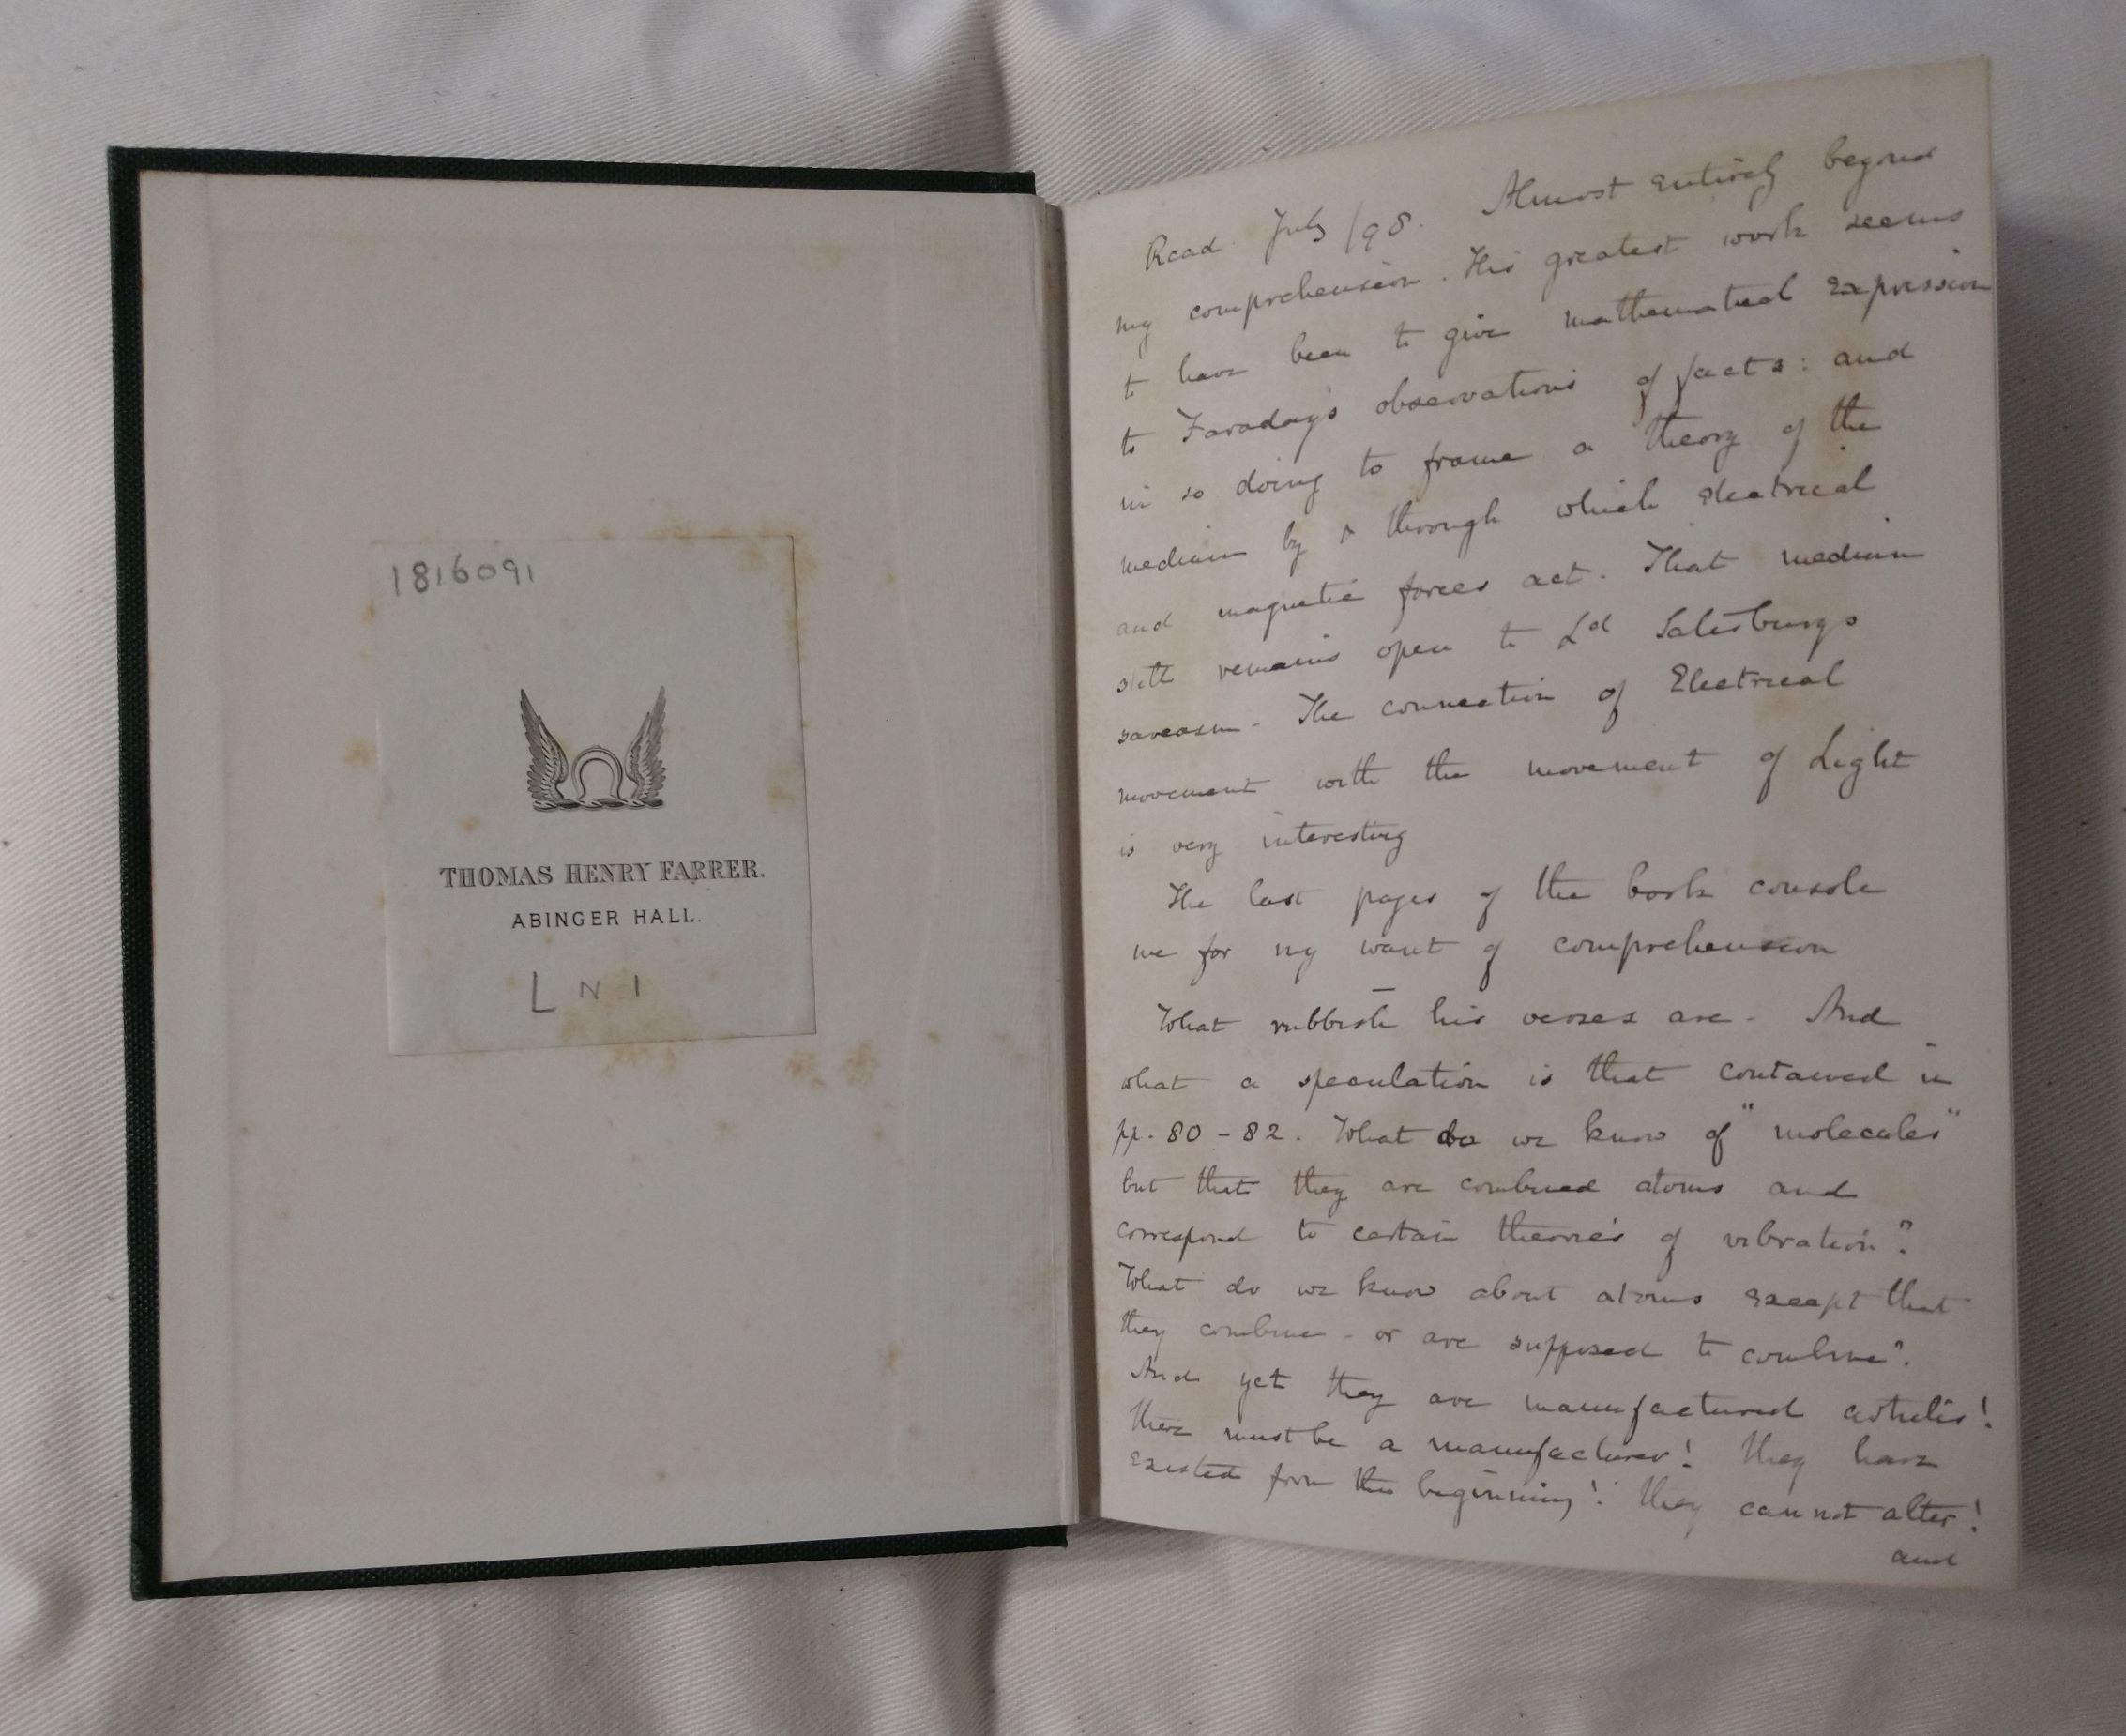 1816091
THOMAS HENRY FARRER.
ABINGER HALL.
L N 1
Read July /98. Almost entirely beyond
my comprehension. His greatest work seems
to have been to give mathematical expression
to Faradays observations of facts: and
in so doing to frame a theory of the
medium by & through which electrical
and magnetic forces act. That medium
still remains open to Ld Salisburys
sarcasm - The connection of Electrical
movement with the movement of Light
is very interesting
The last pages of the book console
me for my want of comprehension
What rubbish his verses are - And
what a speculation is that contained in
pp. 80 - 82. What do we know of "molecules"
but that they are combined atoms and
correspond to certain theories of vibration?
What do we know about atoms except that
they combine - or are supposed to combine?
And yet they are manufactured articles!
there must be a manufacturer! They have
existed from the beginning! they cannot alter!
and